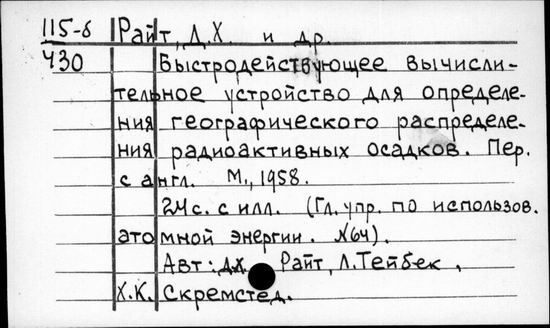 115-б Райт, Д.Х. и др.
Ч30 Быстродействующее вычисли-
тельное устройство для определе-
ния географического распределе-
ния радиоактивных осадков. Пер.
с англ. М., 1958.
24с. с илл. (Гл. упр. по использов.
атомной энергии. №64).
Авт: Д.Х. Райт, Л. Тейбек,
Х.К. Скремстед.